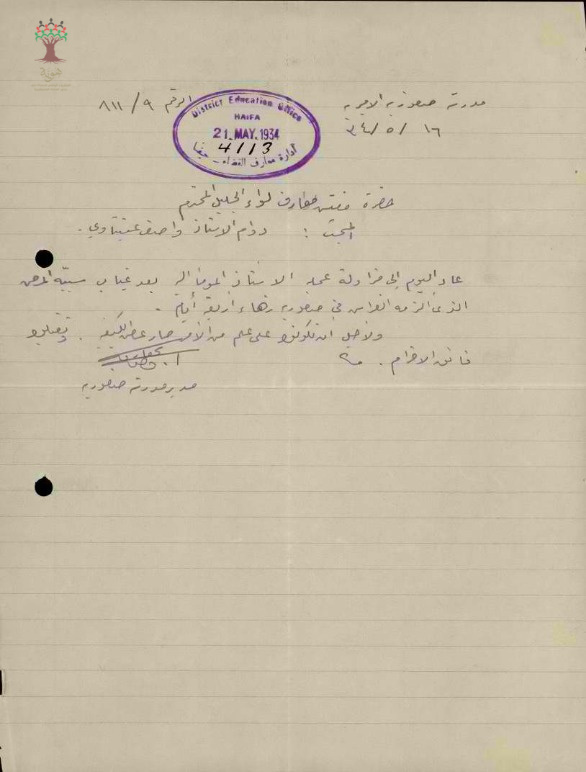 مدرسة صفورية الاميرية
الرقم ٩ / ٨١١
١٦ / ٥ / ٣٤
District Education Office
HAIFA
21. MAY. 1934
4113
ادارة معارف القضاء - حيفا
حضرة مفتش معارف لواء الجليل المحترم
المبحث : دوام الاستاذ واصف عبتاوي .
عاد اليوم الى مزاولة عمله الاستاذ المومأ اليه بعد غياب سببه المرض
الذي الزمه الفراش في صفورية زهاء اربعة أيام .
ولأجل ان تكونوا على علم من الأمر صار عرض الكيفية . وتفضلوا
فائق الاحترام .
مدير مدرسة صفورية